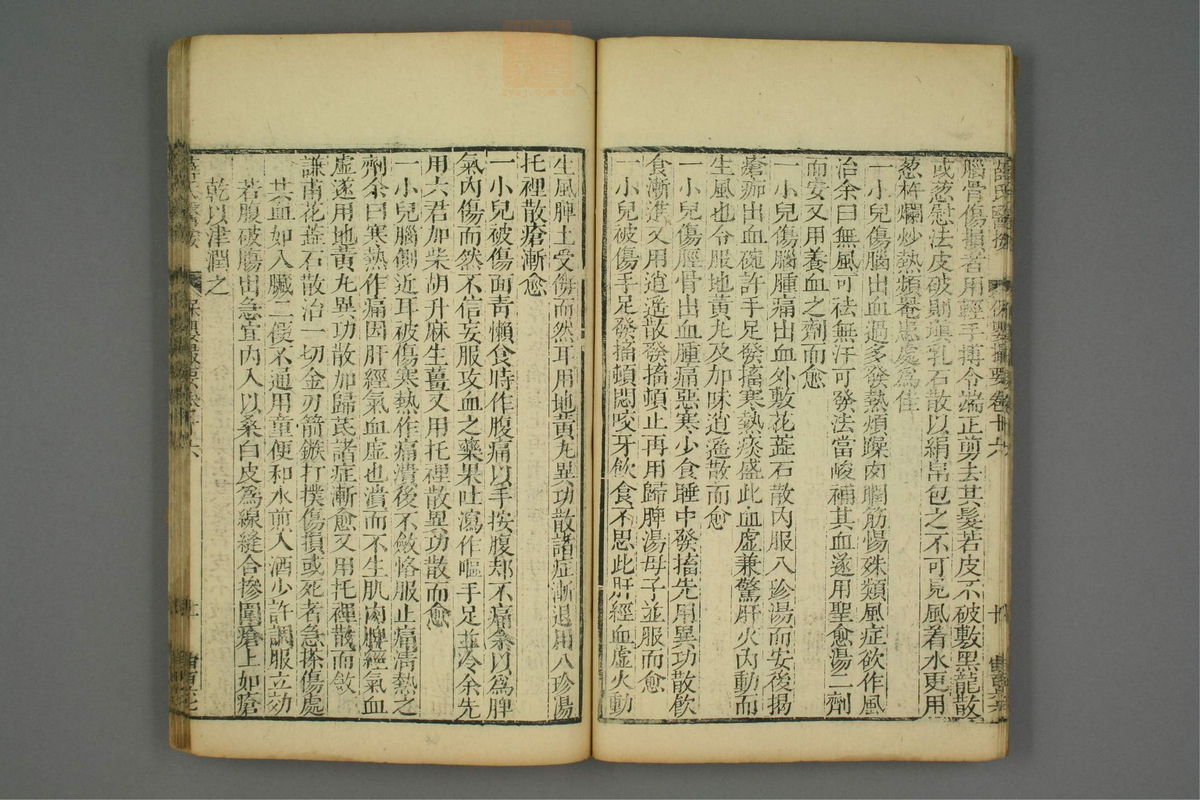 腦骨傷損者用輕手搏令端正剪去其髮若皮不破敷黑龍散
或葱慰法皮破則塡乳石散以絹帛包之不可見風着水更用
葱杵爛炒熱頻罨患處爲佳
一小兒傷腦出血過多發熱煩躁肉瞤筋惕殊類風症欲作風
治余曰無風可祛無汗可發法當峻補其血遂用聖愈湯二劑
而安又用養血之劑而愈
一小兒傷腦腫痛出血外敷花蕋石散內服八珍湯而安後揭
瘡痂出血碗許手足發搐寒熱痰盛此血虛兼驚肝火內動而
生風也令服地黃丸及加味逍遥散而愈
一小兒傷脛骨出血腫痛惡寒少食睡中發搐先用異功散飲
食漸進又用逍遥散發搐頓止再用歸脾湯母子並服而愈
一小兒被傷手足發搐頓悶咬牙飲食不思此肝經血虛火動
生風脾土受傷而然耳用地黃丸異功散諸症漸退用八珍湯
托裡散瘡漸愈
一小兒破傷面靑懶食時作腹痛以手按腹却不痛余以爲脾
氣內傷而然不信妄服攻血之藥果吐瀉作嘔手足並冷余先
用六君加柴胡升麻生薑又用托裡散異功散而愈
一小兒腦側近耳被傷寒熱作痛潰後不斂恪服止痛淸熱之
劑余曰寒熱作痛因肝經氣血虛也潰而不生肌肉脾經氣血
虛遂用地黃丸異功散加歸芪諸症漸愈又用托裡散而斂
謙甫花蕋石散治一切金刃箭鏃打撲傷損或死者急搽傷處
其血如入臟二便不通用童便和水煎入酒少許調服立効
若腹破腸出急宜內入以桑白皮爲線縫合摻圍瘡上如瘡
乾以津潤之